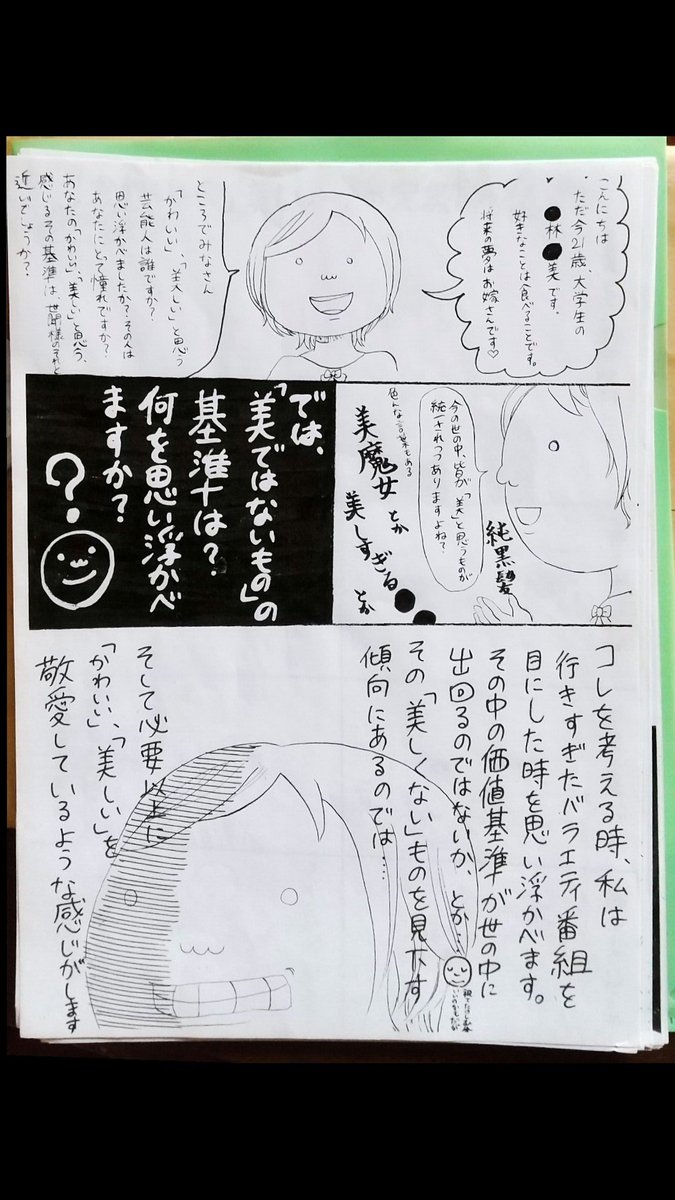 こんにちは
ただ今21歳、大学生の
●林●美です。
好きなことは食べることです。
将来の夢はお嫁さんです♡
ところでみなさん
「かわいい」、「美しい」と思う
芸能人は誰ですか？
思い浮かべましたか？その人は
あなたにとって憧れですか？
あなたの「かわいい」、「美しい」と思う、
感じるその基準は、世間様のそれと
近いでしょうか？
今の世の中、皆が「美」と思うものが
統一されつつありますよね？
純黒髪
色んな言葉もある
美魔女とか
美しすぎる●●とか
では、
「美ではないもの」の
基準は？
何を思い浮かべ
ますか？
？
コレを考える時、私は
行きすぎたバラエティ番組を
目にした時を思い浮かべます。
その中の価値基準が世の中に
出回るのではないか、とか…
その「美しくない」ものを見下す
傾向にあるのでは…
そして必要以上に
「かわいい」、「美しい」を
敬愛しているような感じがします